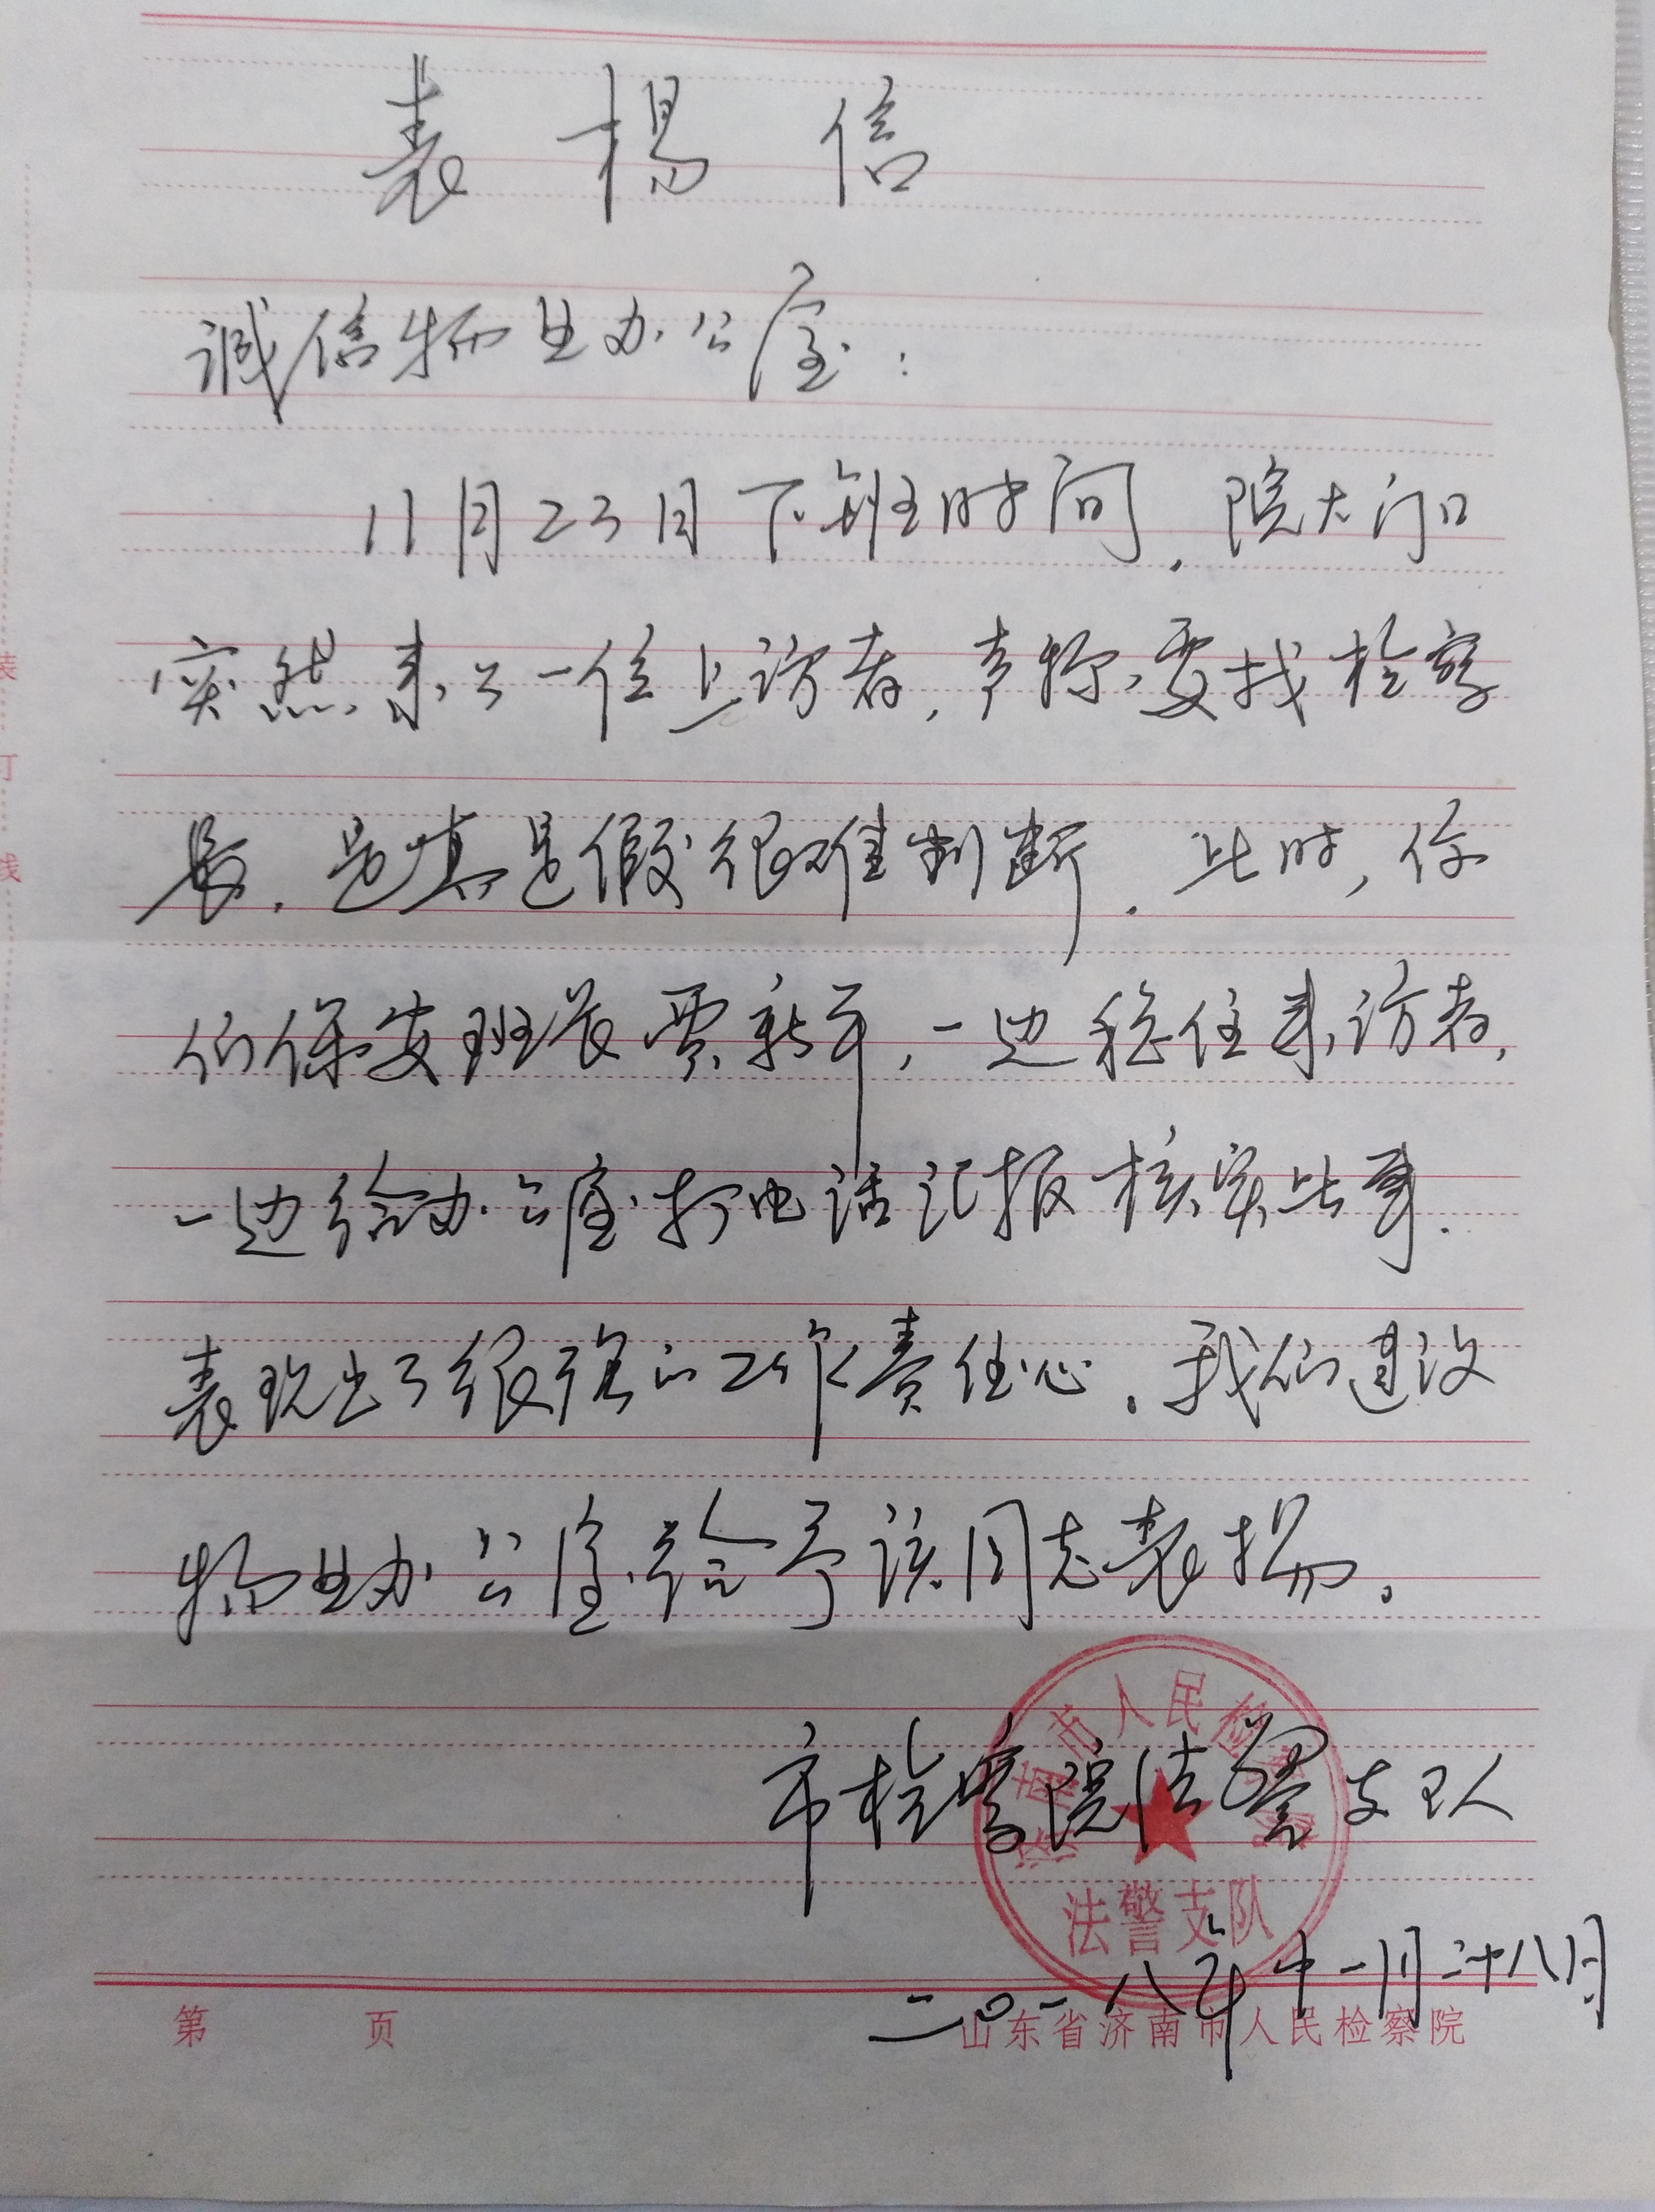 表扬信
诚信物业办公室：
11月23日下班时间，院大门口
突然来了一位上访者，声称要找检察
长，是真是假很难判断．此时，你
们保安班长贾新军，一边稳住来访者，
一边给办公室打电话汇报核实此事．
表现出了很强的工作责任心．我们建议
物业办公室给予该同志表扬。
市检察院法警支队
二〇一八年十一月二十八日
济南市人民检察院
法警支队
第 页
山东省济南市人民检察院
装订线